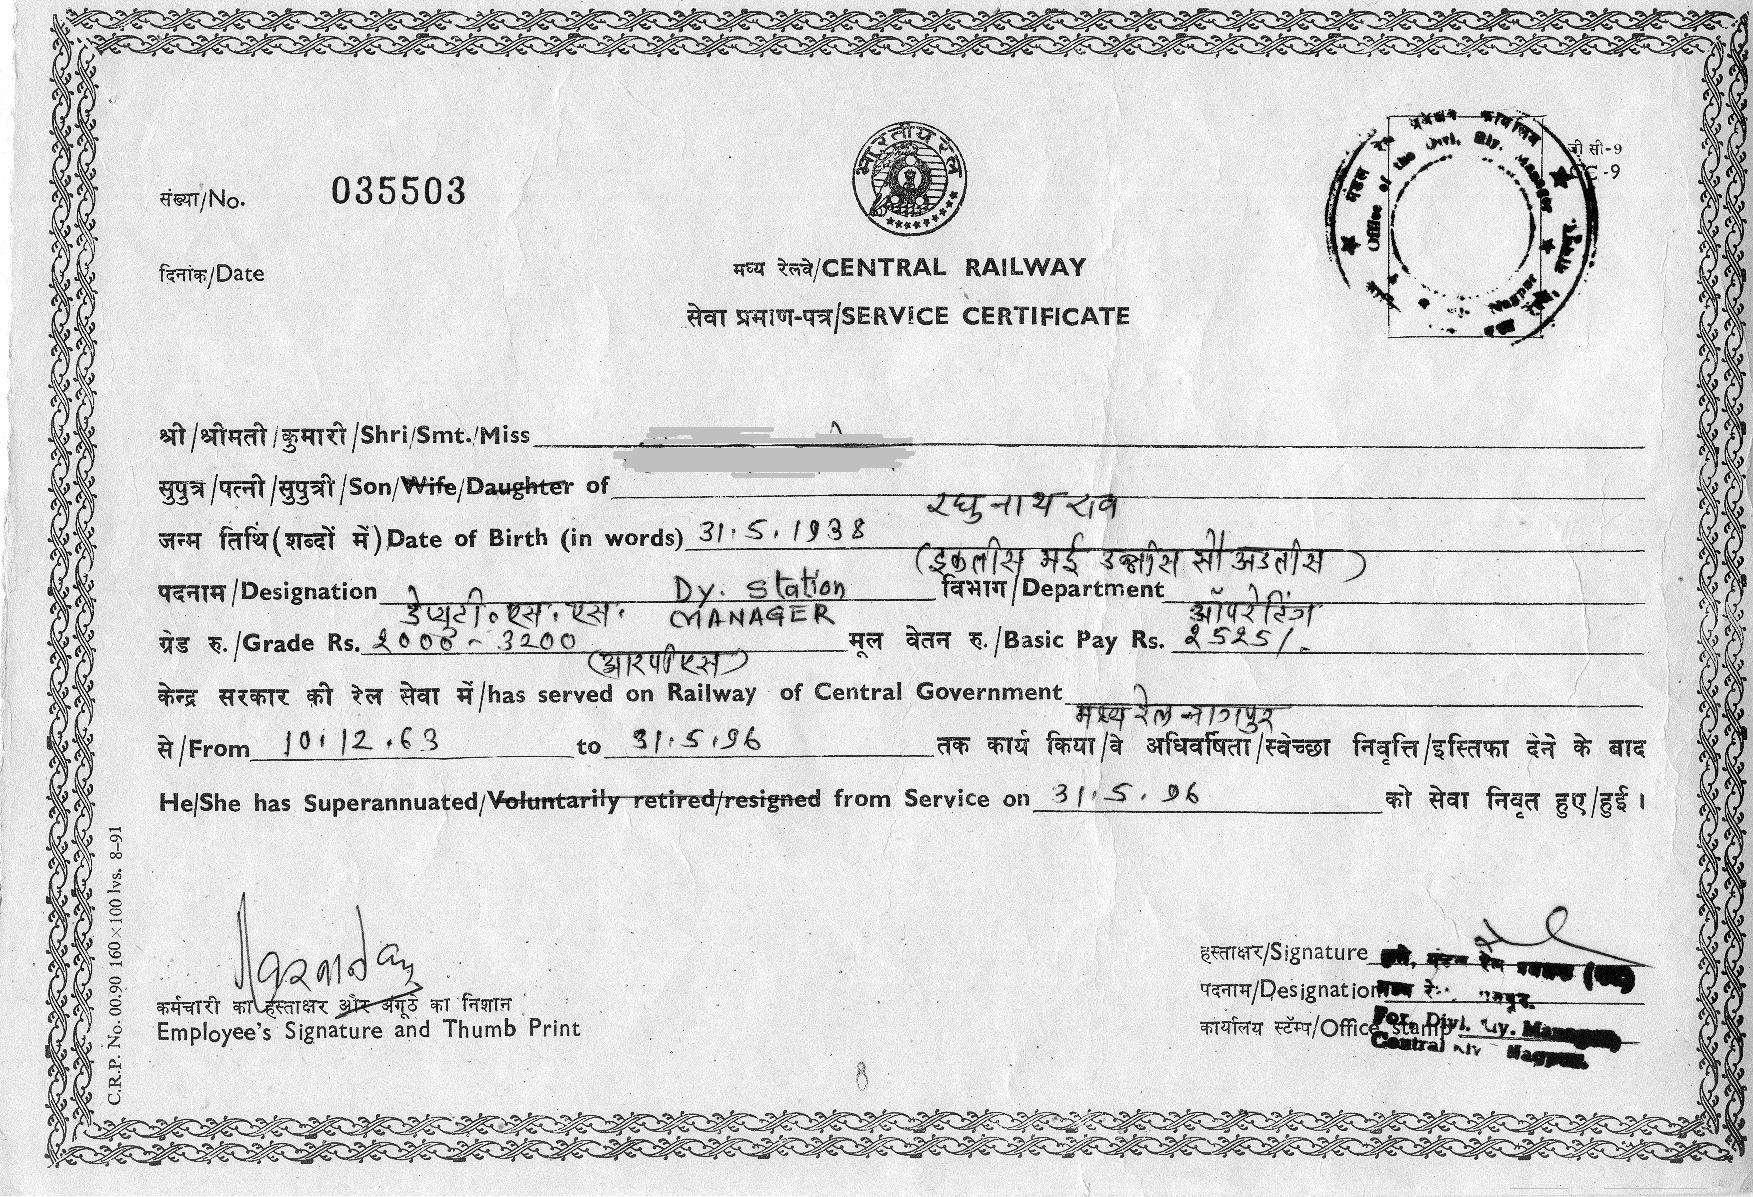 मंडल रेल प्रबंधक कार्यालय
Office of the Divl. Rly. Manager
Nagpur
जी सी-9
GC-9
भारतीय रेल
संख्या/No. 035503
दिनांक/Date
मध्य रेलवे/CENTRAL RAILWAY
सेवा प्रमाण-पत्र/SERVICE CERTIFICATE
श्री/श्रीमती/कुमारी/Shri/Smt./Miss
सुपुत्र/पत्नी/सुपुत्री/Son/Wife/Daughter of रघुनाथ राव
जन्म तिथि (शब्दों में) Date of Birth (in words) 31.5.1938 (इकतीस मई उन्नीस सौ अडतीस)
पदनाम/Designation डेप्युटी.एस.एस. Dy. Station MANAGER विभाग/Department ऑपरेटिंग
ग्रेड रु./Grade Rs. 2000-3200 (आरपीएस) मूल वेतन रु./Basic Pay Rs. 2525/-
केन्द्र सरकार की रेल सेवा में/has served on Railway of Central Government मध्य रेल नागपुर
से/From 10.12.63 to 31.5.96 तक कार्य किया/वे अधिवर्षिता/स्वेच्छा निवृत्ति/इस्तिफा देने के बाद
He/She has Superannuated/Voluntarily retired/resigned from Service on 31.5.96 को सेवा निवृत हुए/हुई।
C.R.P. No. 00.90 160×100 lvs. 8-91
कर्मचारी का हस्ताक्षर और अंगूठे का निशान
Employee's Signature and Thumb Print
हस्ताक्षर/Signature
पदनाम/Designation
कार्यालय स्टॅम्प/Office stamp
For, Divl. Rly. Manager
Central Rly Nagpur.
8